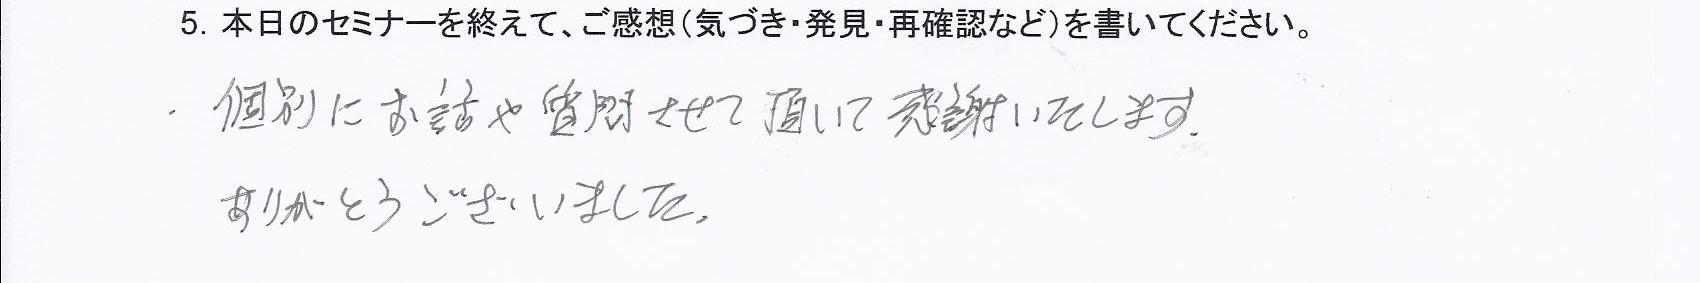 5. 本日のセミナーを終えて、ご感想(気づき・発見・再確認など)を書いてください。
個別にお話や質問させて頂いて感謝いたします.
ありがとうございました。